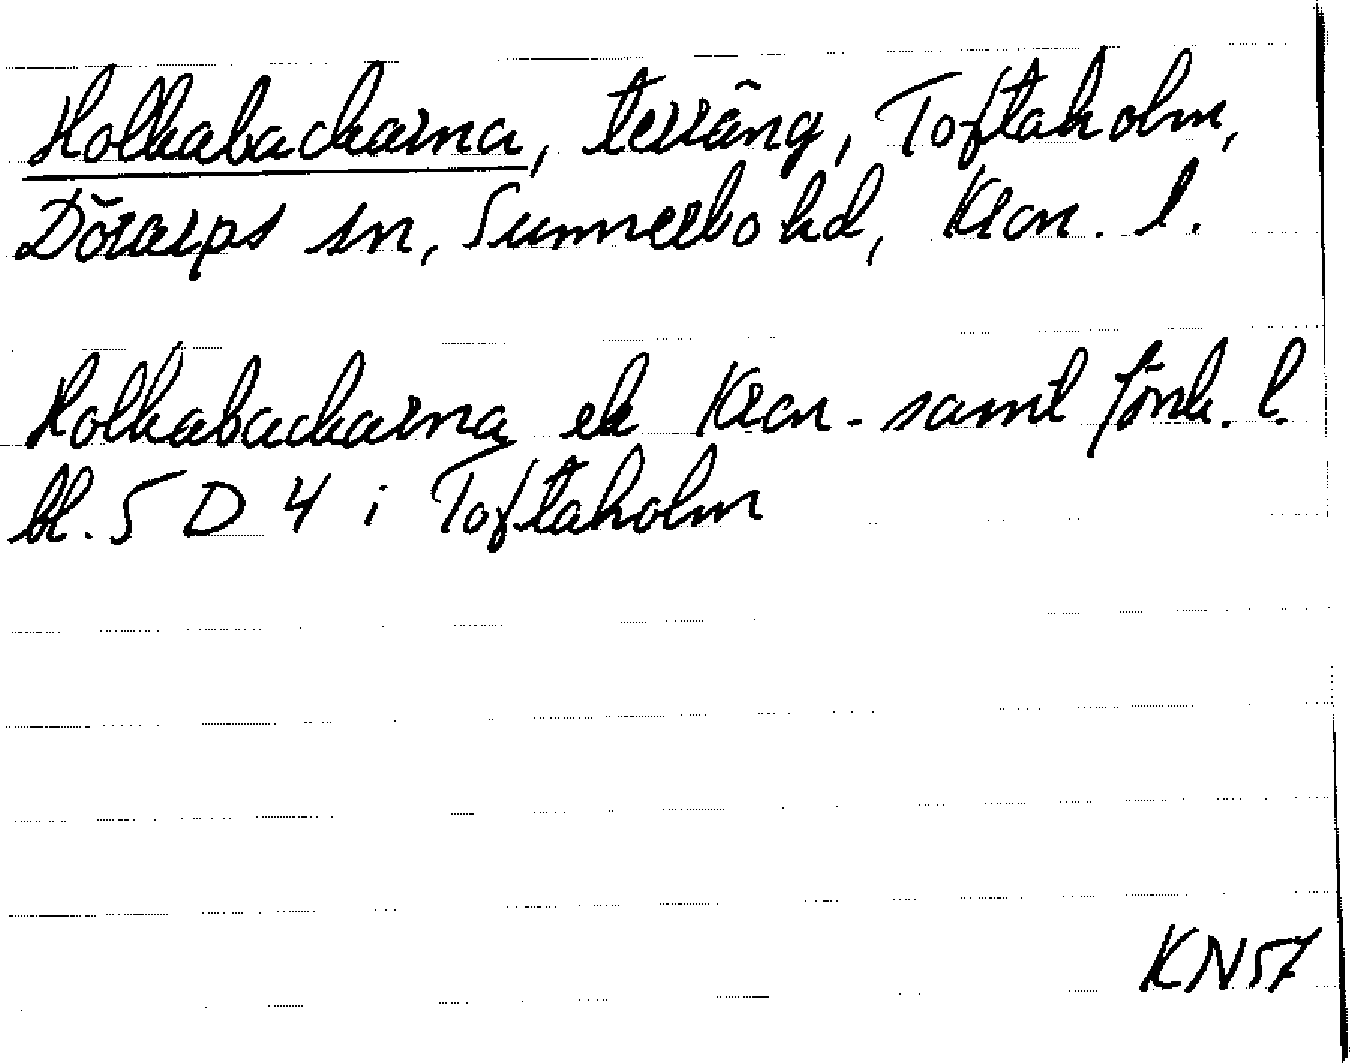 Holkabackarna, terräng, Toftaholm,
Dörarps sn, Sunnerbo hd, Kron. l.
Holkabackarna ek Kron.- samt Jönk. l.
bl. 5 D 4 i Toftaholm
KN57